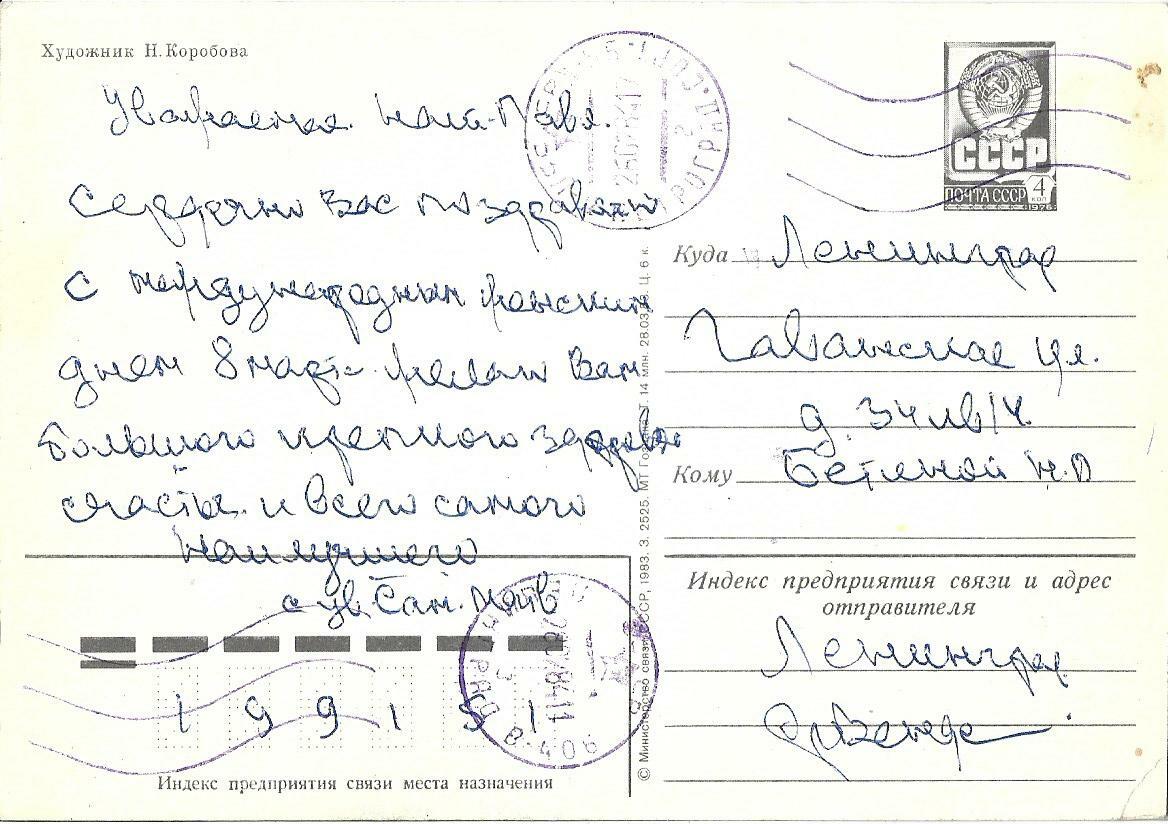 Художник Н. Коробова
Уважаемая
Сердечно Вас поздравляю
с международным женским
днем 8 март желаю Вам
большого крепкого здоровья
счастья и всего самого
наилучшего
с ув.
СССР
ПОЧТА СССР 4 КОП
1976
Куда Ленинград
Гаванская ул.
д. 34 кв 14
Кому Бетиной Н.П
Индекс предприятия связи и адрес
отправителя
Ленинград
199151
Индекс предприятия связи места назначения
© Министерство связи СССР, 1983. З. 2525. МТ Гознака. Т. 14 млн. 28.03. Ц. 6 к.